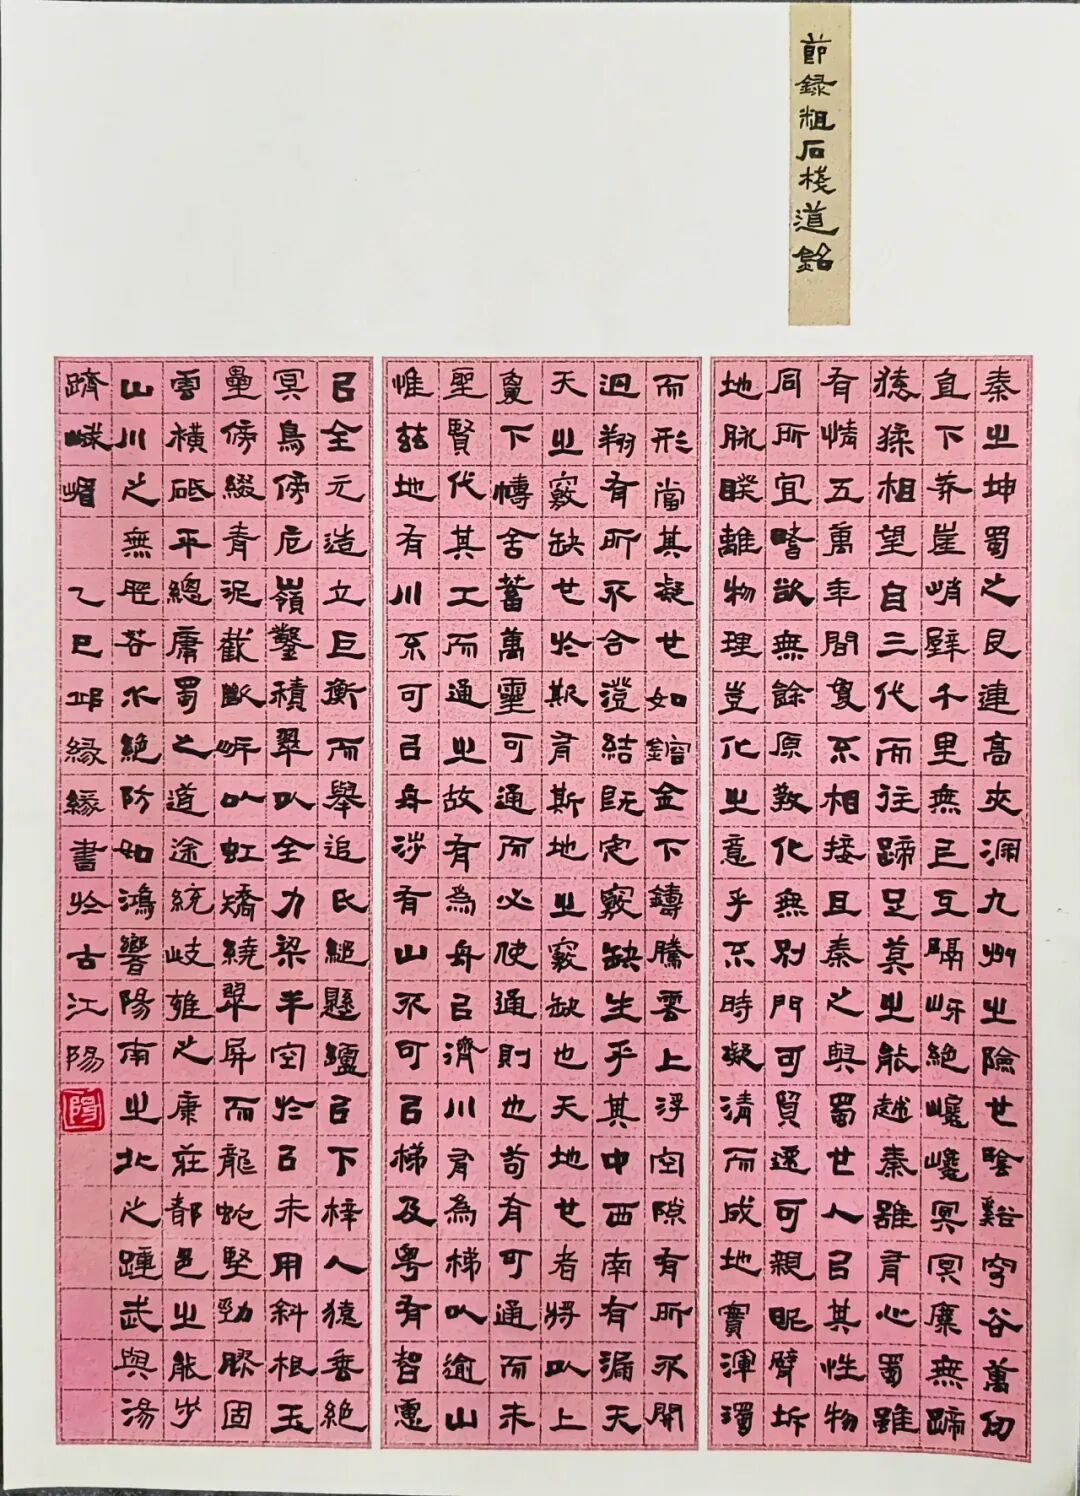 節錄粗石棧道銘
秦之坤蜀之艮連高夾深九州之險也陰谿窮谷萬仞
直下莽崖峭壁千里無已互隔岈絕巉巉冥冥麋無蹄
猿猱相望自三代而往蹄足莫之能越秦雖有心蜀雖
有情五萬年間夐不相接且秦之與蜀也人以其性物
同所宜嗜欲無餘原教化無別門可貿遷可親昵擘坼
地脉睽離物理豈化之意乎不時凝清而成地實渾濁
而形當其凝也如鎔金下鑄騰雲上浮空隙有所不開
迴翔有所不合澄結既定竅缺生乎其中西南有漏天
天之竅缺也於斯有斯地之竅缺也天地也者將以上
覆下幬含蓄萬靈可通而必使通則也苟有可通而未
聖賢代其工而通之故有為舟以濟川有為梯以逾山
惟茲地有川不可以舟涉有山不可以梯及粵有智慮
以全元造立巨衡而舉追氏縋懸纑以下梓人猿垂絕
冥鳥傍危嶺鑿積翠以全力梁半空於以未用斜根玉
壘傍綴青泥截斷岈以虹矯繞翠屏而龍蛇堅勁膠固
雲橫砥平總庸蜀之道途統岐雍之康莊都邑之能步
山川之無脛若水絕防如鴻響陽南之北之踵武與湯
躋峨嵋 乙巳邱緣緣書於古江陽